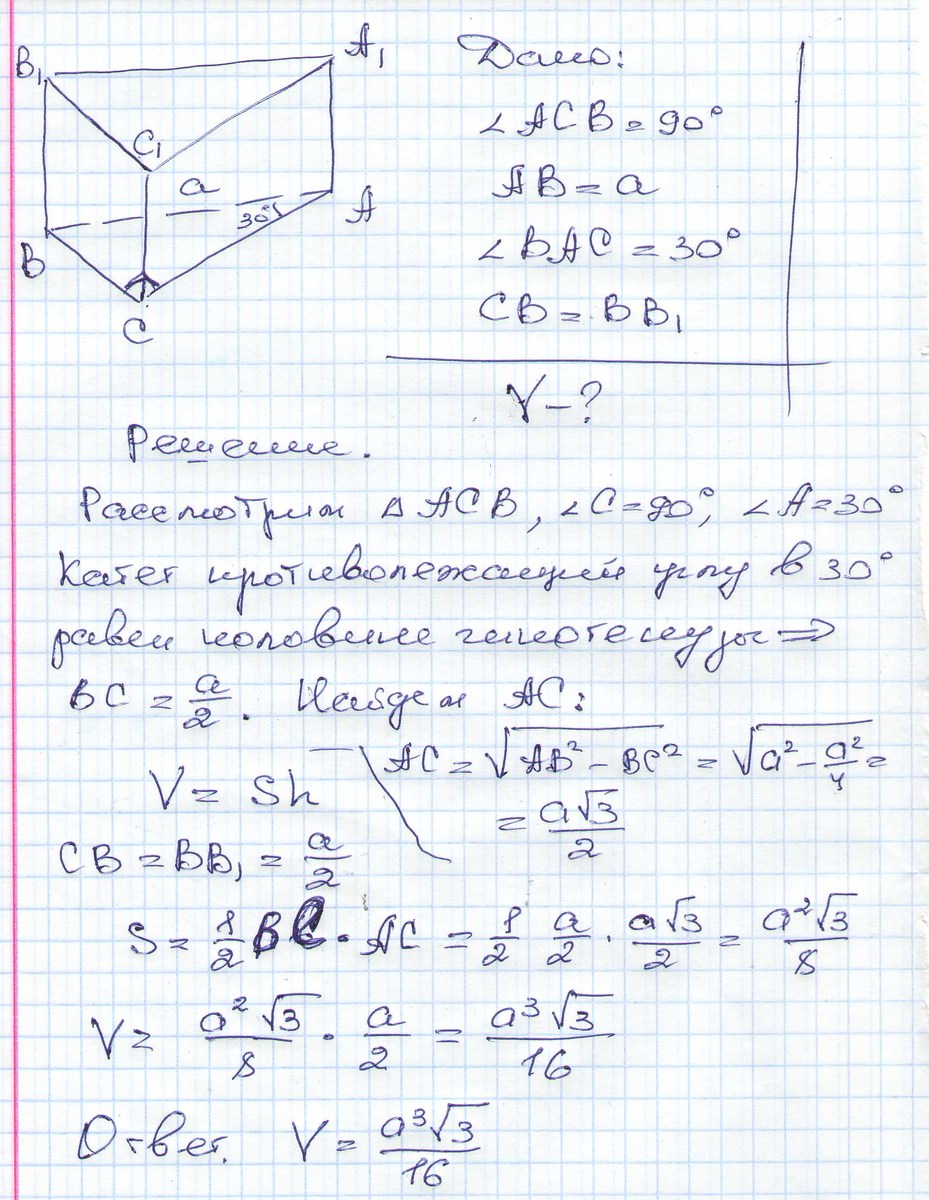 B₁
A₁
C₁
a
30°
A
B
C
Дано:
∠ACB = 90°
AB = a
∠BAC = 30°
CB = BB₁
V – ?
Решение.
Рассмотрим Δ ACB, ∠C=90°, ∠A=30°
Катет противолежащий углу в 30°
равен половине гипотенузы ⇒
BC = a/2. Найдем AC:
AC = √(AB² – BC²) = √(a² – a²/4) =
= a√3/2
V = Sh
CB = BB₁ = a/2
S = 1/2 BC · AC = 1/2 a/2 · a√3/2 = a²√3/8
V = a²√3/8 · a/2 = a³√3/16
Ответ. V = a³√3/16